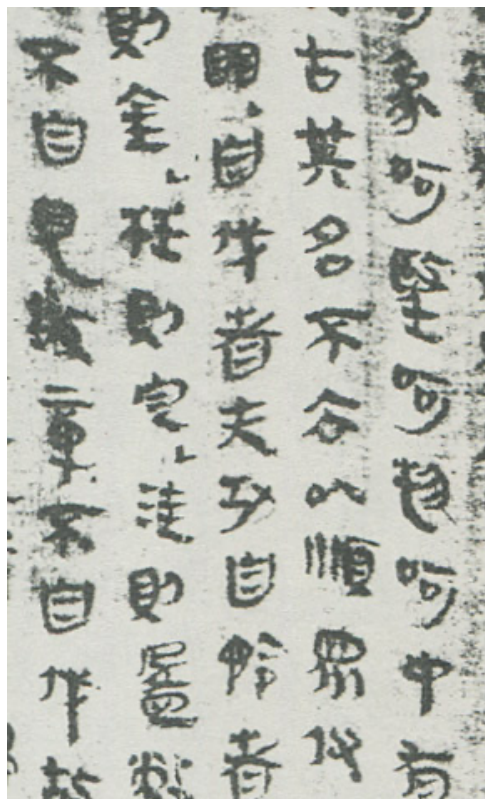 象呵望呵呵中有
古其名不去以順眾仪
明自伐者无功自矜者
則金枉則定洼則盈敝
不自見故章不自伐故